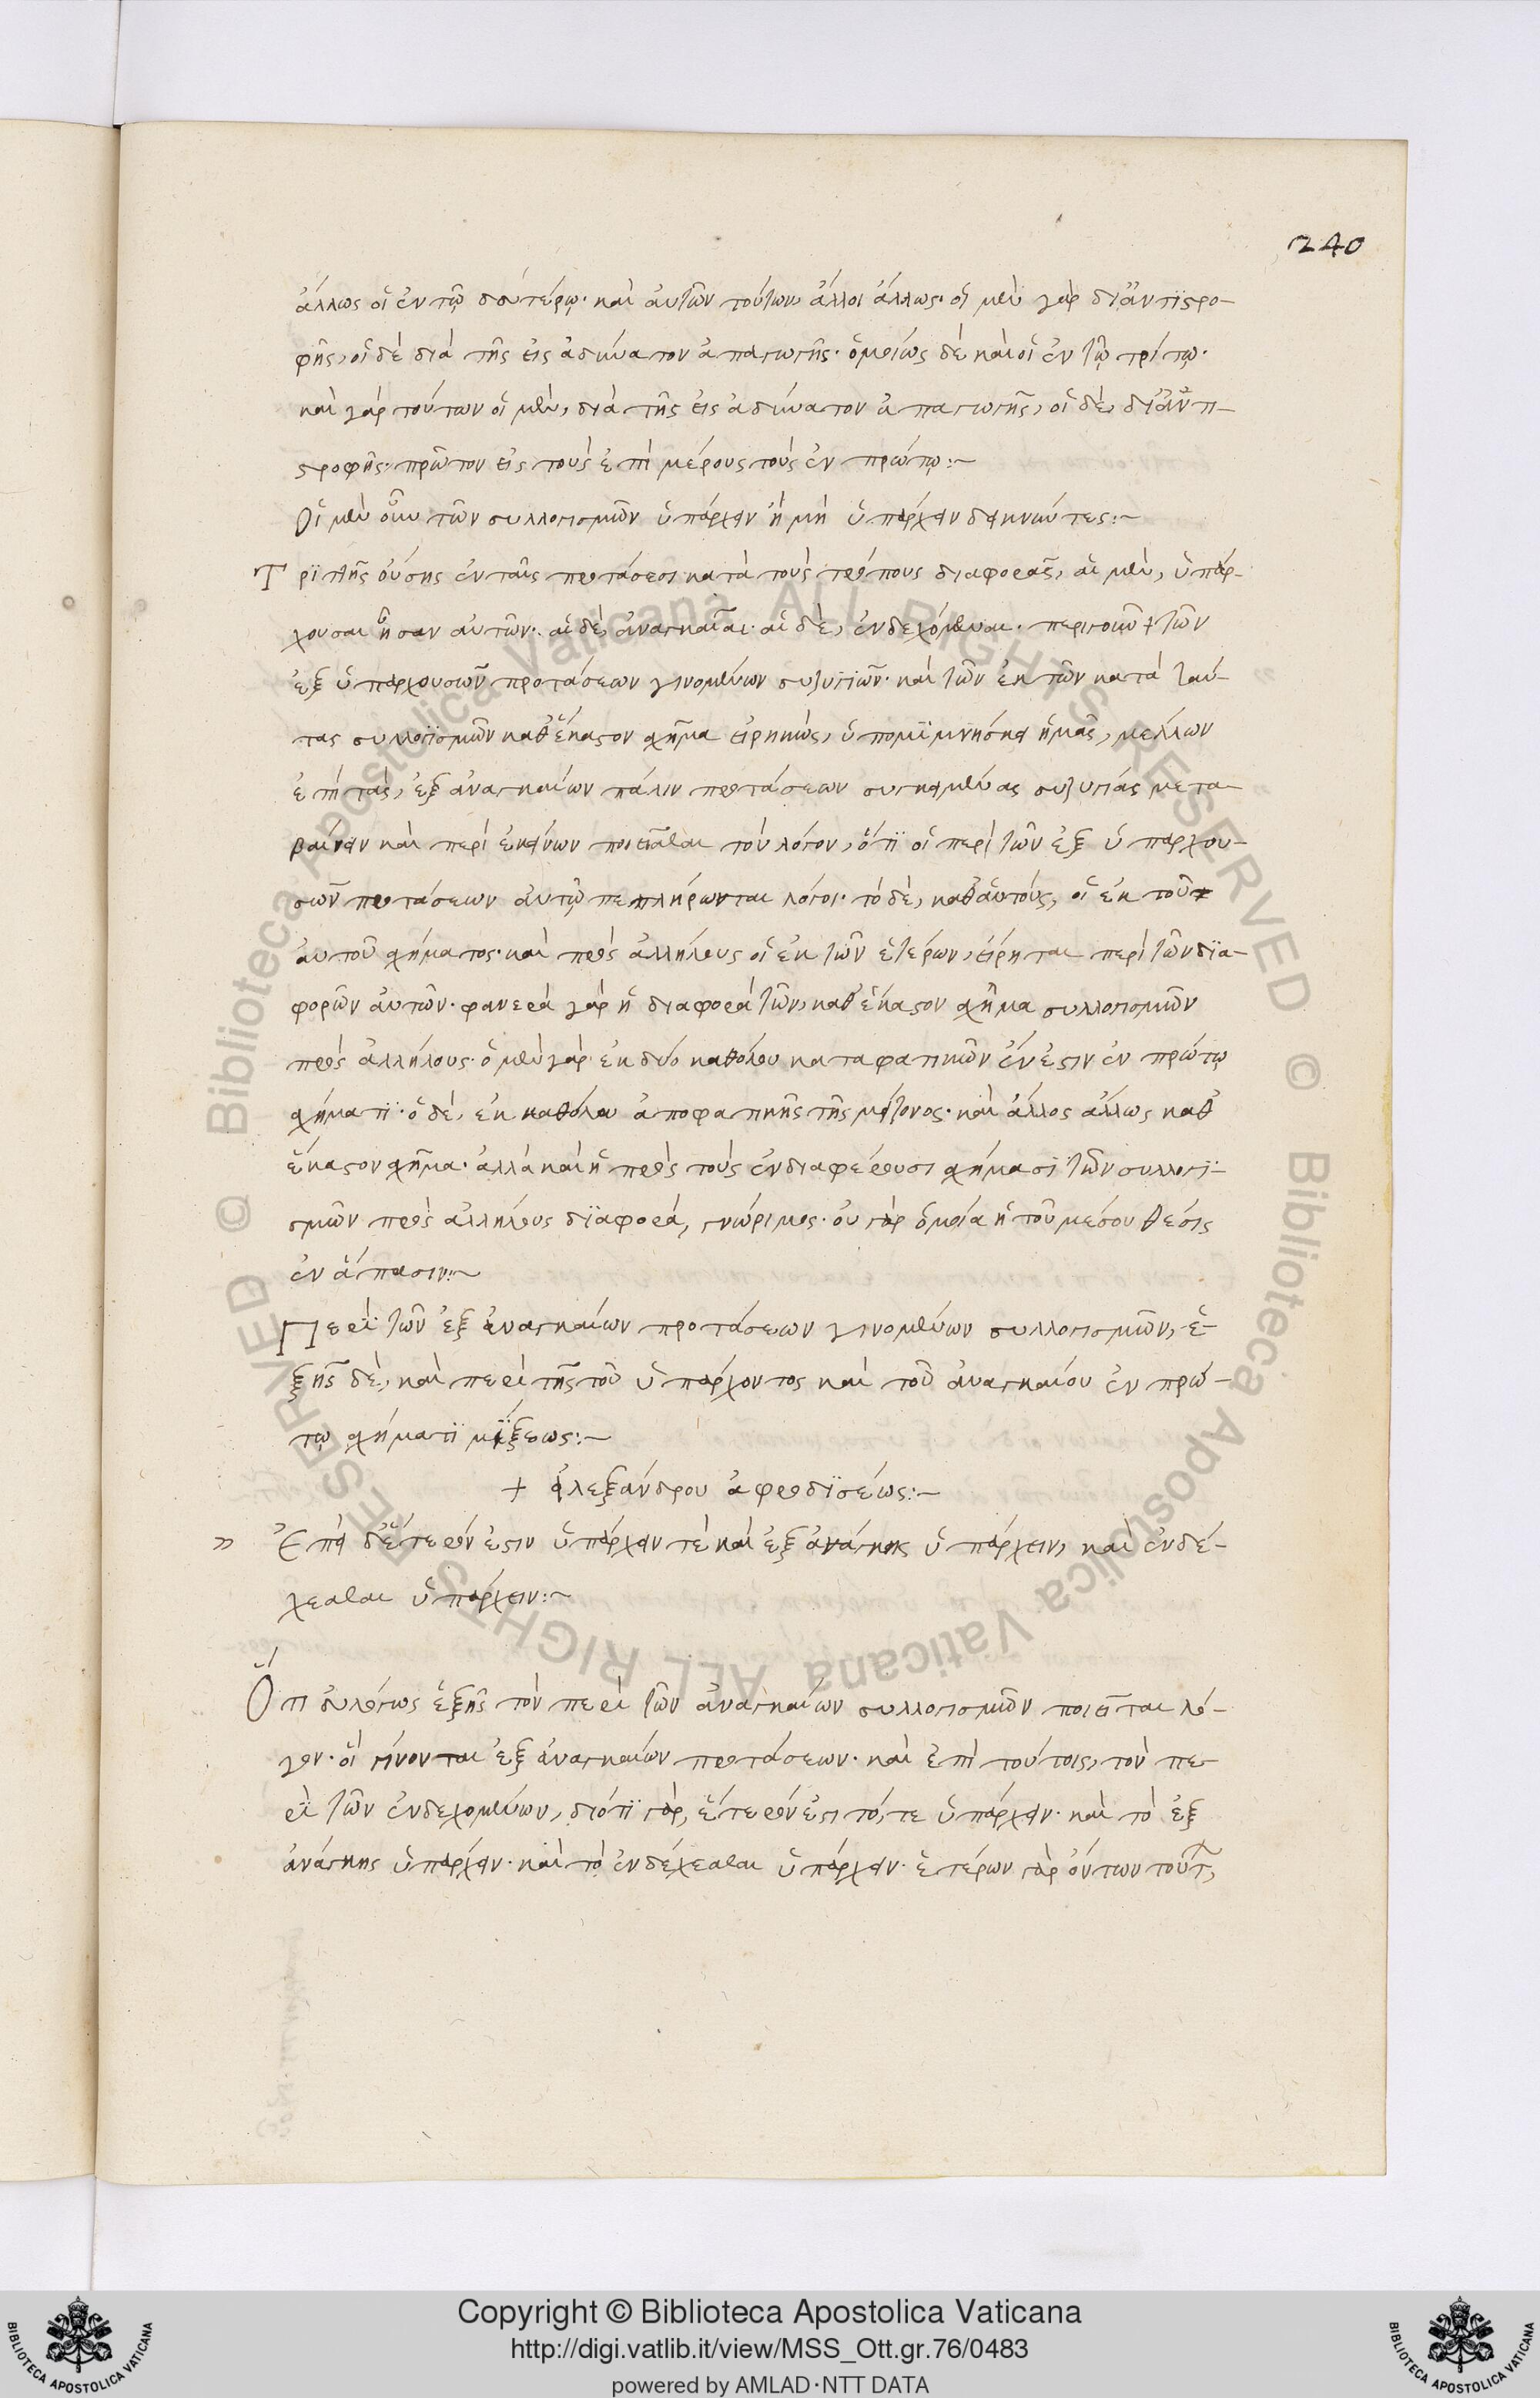 240
ἄλλως οἱ ἐν τῷ δευτέρῳ· καὶ αὐτῶν τούτων, ἄλλοι ἄλλως· οἱ μὲν γὰρ δι' ἀντιστρο-
φῆς, οἱ δὲ διὰ τῆς εἰς ἀδύνατον ἀπαγωγῆς· ὁμοίως δὲ καὶ οἱ ἐν τῷ τρίτῳ·
καὶ γὰρ τούτων οἱ μὲν, διὰ τῆς εἰς ἀδύνατον ἀπαγωγῆς, οἱ δὲ, δι' ἀντι-
στροφῆς· πρῶτον εἰς τοὺς ἐπὶ μέρους τοὺς ἐν πρώτῳ:~
Οἱ μὲν οὖν τῶν συλλογισμῶν ὑπάρχειν ἢ μὴ ὑπάρχειν δεικνύντες:~
Τριττῆς οὔσης ἐν ταῖς προτάσεσι κατὰ τοὺς τρόπους διαφορᾶς, αἱ μὲν, ὑπάρ-
χουσαι ἦσαν αὐτῶν· αἱ δὲ, ἀναγκαῖαι· αἱ δὲ, ἐνδεχόμεναι. περὶ τῶν
ἐξ ὑπαρχουσῶν προτάσεων γινομένων συζυγιῶν· καὶ τῶν ἐκ τῶν κατὰ ταύ-
τας συλλογισμῶν καθ' ἕκαστον σχῆμα εἰρηκὼς, ὑπομιμνήσκει ἡμᾶς, μέλλων
ἐπὶ τὰς, ἐξ ἀναγκαίων πάλιν προτάσεων συγκειμένας συζυγίας μετα-
βαίνειν καὶ περὶ ἐκείνων ποιεῖσθαι τὸν λόγον, ὅτι οἱ περὶ τῶν ἐξ ὑπαρχου-
σῶν προτάσεων αὐτῷ πεπλήρωνται λόγοι· τὸ δὲ, καθ' αὑτούς, οἱ ἐκ τοῦ
αὐτοῦ σχήματος· καὶ πρὸς ἀλλήλους οἱ ἐκ τῶν ἑτέρων, εἴρηται περὶ τῶν δια-
φορῶν αὐτῶν· φανερὰ γὰρ ἡ διαφορὰ τῶν, καθ' ἕκαστον σχῆμα συλλογισμῶν
πρὸς ἀλλήλους· ὁ μὲν γὰρ ἐκ δύο καθόλου καταφατικῶν ἐν ἐστιν ἐν πρώτῳ
σχήματι· ὁ δὲ, ἐκ καθόλου ἀποφατικῆς τῆς μείζονος· καὶ ἄλλος ἄλλως καθ'
ἕκαστον σχῆμα· ἀλλὰ καὶ ἡ πρὸς τοὺς ἐν διαφέρουσι σχήμασι τῶν συλλογι-
σμῶν πρὸς ἀλλήλους διαφορά, γνώριμος· οὐ γὰρ ὁμοία ἡ τοῦ μέσου θέσις
ἐν ἅπασιν:~
Περὶ τῶν ἐξ ἀναγκαίων προτάσεων γινομένων συλλογισμῶν, ἑ-
ξῆς δὲ, καὶ περὶ τῆς τοῦ ὑπάρχοντος καὶ τοῦ ἀναγκαίου ἐν πρώ-
τῳ σχήματι μίξεως:~
+ ἀλεξάνδρου ἀφροδισέως:~
» Ἐπεὶ δ' ἕτερόν ἐστιν ὑπάρχειν τὲ καὶ ἐξ ἀνάγκης ὑπάρχειν, καὶ ἐνδέ-
χεσθαι ὑπάρχειν:~
Ὅτι εὐλόγως ἑξῆς τὸν περὶ τῶν ἀναγκαίων συλλογισμῶν ποιεῖται λό-
γον· οἳ γίνονται ἐξ ἀναγκαίων προτάσεων· καὶ ἐπὶ τούτοις, τὸν πε-
ρὶ τῶν ἐνδεχομένων, διότι γὰρ, ἕτερόν ἐστι τό, τε ὑπάρχειν· καὶ τὸ ἐξ
ἀνάγκης ὑπάρχειν· καὶ τὸ ἐνδέχεσθαι ὑπάρχειν· ἑτέρων γὰρ ὄντων τούτ,
Copyright © Biblioteca Apostolica Vaticana
http://digi.vatlib.it/view/MSS_Ott.gr.76/0483
powered by AMLAD·NTT DATA